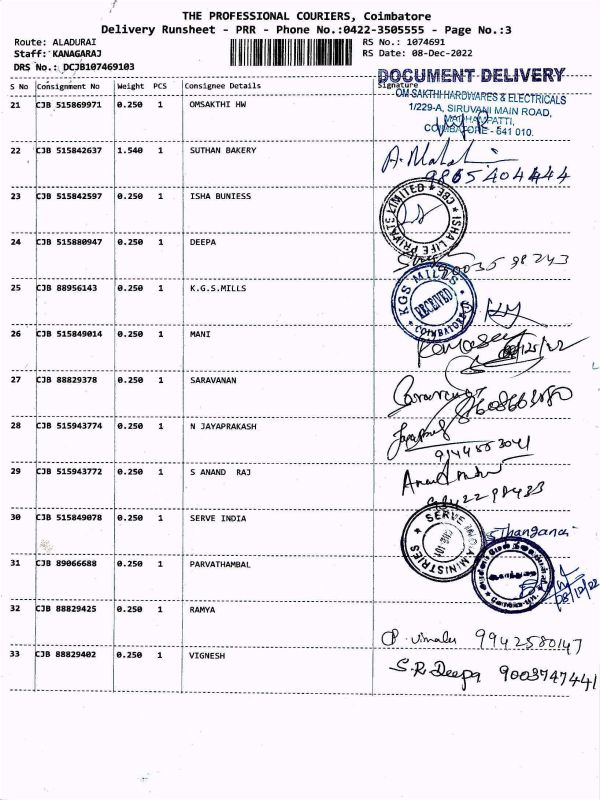 THE PROFESSIONAL COURIERS, Coimbatore
Delivery Runsheet - PRR - Phone No.:0422-3505555 - Page No.:3
Route: ALADURAI
Staff: KANAGARAJ
DRS No.: DCJB107469103
RS No.: 1074691
RS Date: 08-Dec-2022
S No Consignment No Weight PCS Consignee Details Signature
DOCUMENT DELIVERY
21 CJB 515869971 0.250 1 OMSAKTHI HW
OM SAKTHI HARDWARES & ELECTRICALS
1/229-A, SIRUVANI MAIN ROAD,
MADHAMPATTI,
COIMBATORE - 641 010.
22 CJB 515842637 1.540 1 SUTHAN BAKERY
9865404444
23 CJB 515842597 0.250 1 ISHA BUNIESS
ISHA LIFE PRIVATE LIMITED CBE
24 CJB 515880947 0.250 1 DEEPA
25 CJB 88956143 0.250 1 K.G.S.MILLS
KGS MILLS RECEIVED COIMBATORE
26 CJB 515849014 0.250 1 MANI
27 CJB 88829378 0.250 1 SARAVANAN
28 CJB 515943774 0.250 1 N JAYAPRAKASH
29 CJB 515943772 0.250 1 S ANAND RAJ
30 CJB 515849078 0.250 1 SERVE INDIA
31 CJB 89066688 0.250 1 PARVATHAMBAL
08/12/22
32 CJB 88829425 0.250 1 RAMYA
P. vimala 9942580147
33 CJB 88829402 0.250 1 VIGNESH
S.R. Deepa 9003747441